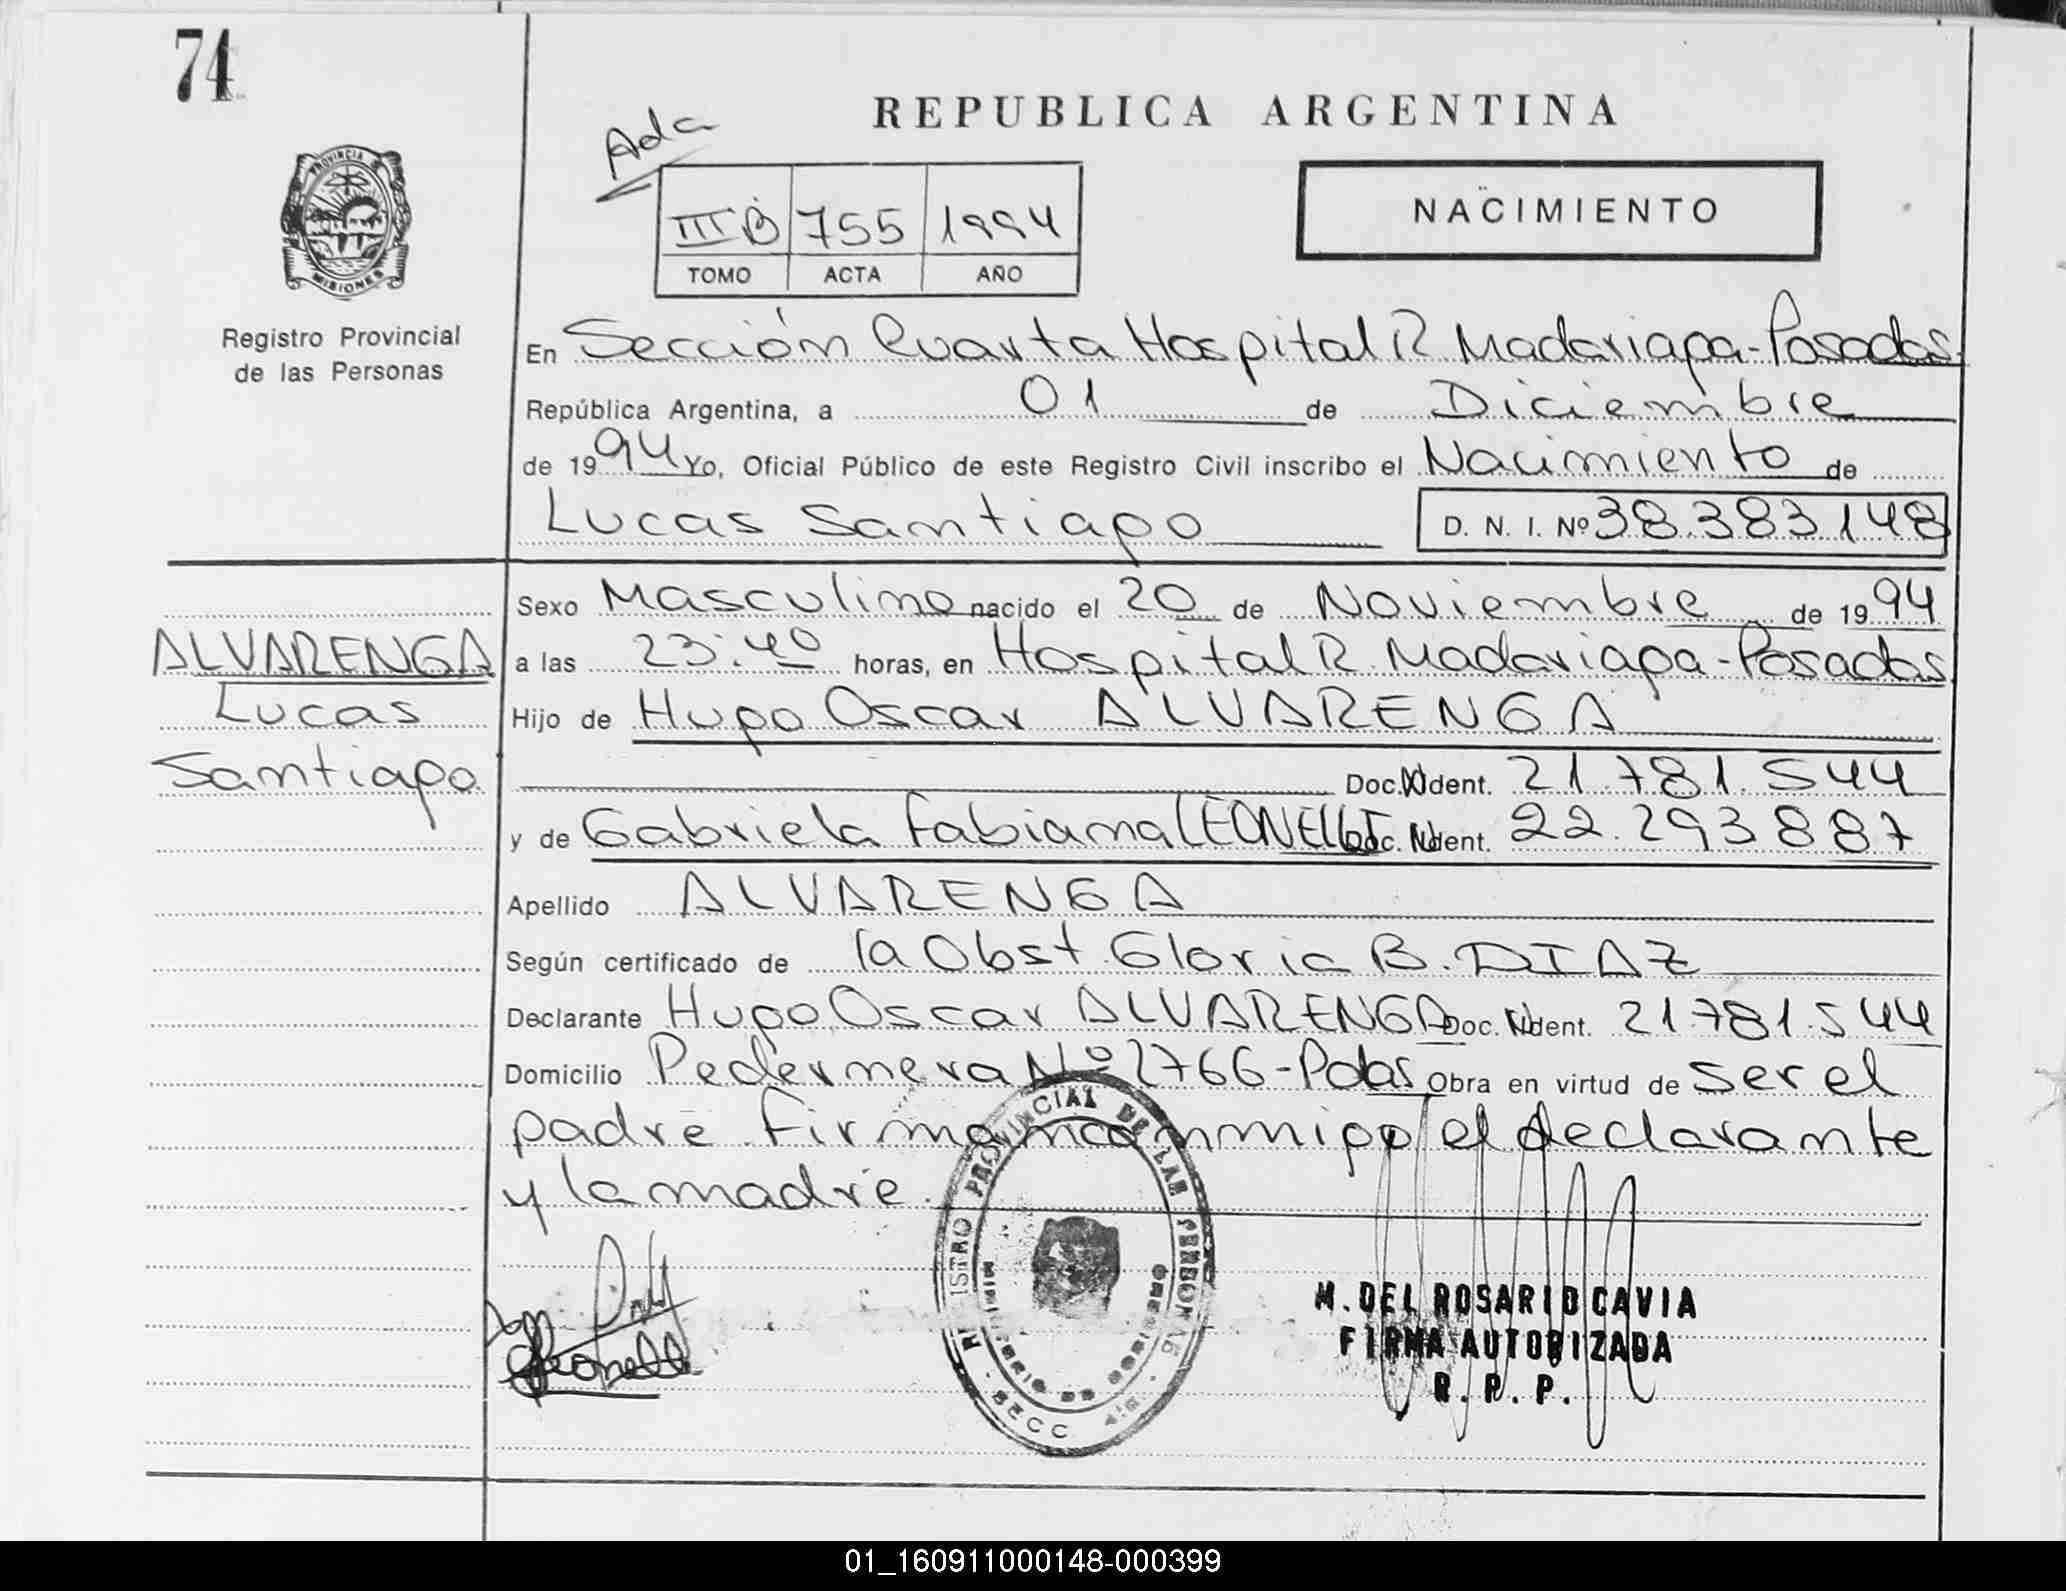 74
REPUBLICA ARGENTINA
Ada
III B 755 1994
TOMO ACTA AÑO
NACIMIENTO
PROVINCIA DE
MISIONES
Registro Provincial
de las Personas
En Sección Cuarta Hospital R Madariaga-Posadas.
República Argentina, a 01 de Diciembre
de 1994 Yo, Oficial Público de este Registro Civil inscribo el Nacimiento de
Lucas Santiago D. N. I. Nº 38.383.148
Sexo Masculino nacido el 20 de Noviembre de 1994
ALVARENGA
Lucas
Santiago
a las 23:40 horas, en Hospital R. Madariaga-Posadas
Hijo de Hugo Oscar ALVARENGA
Doc. Ident. 21.781.544
y de Gabriela Fabiana LEONELLI Doc. Ident. 22.293887
Apellido ALVARENGA
Según certificado de la Obst. Gloria B. DIAZ
Declarante Hugo Oscar ALVARENGA Doc. Ident. 21781.544
Domicilio Pedernera Nº 2766-Pdas Obra en virtud de ser el
padre. Firman conmigo el declarante
y la madre.
REGISTRO PROVINCIAL DE LAS PERSONAS
SECC
M. DEL ROSARIO CAVIA
FIRMA AUTORIZADA
R. P. P.
01_160911000148-000399